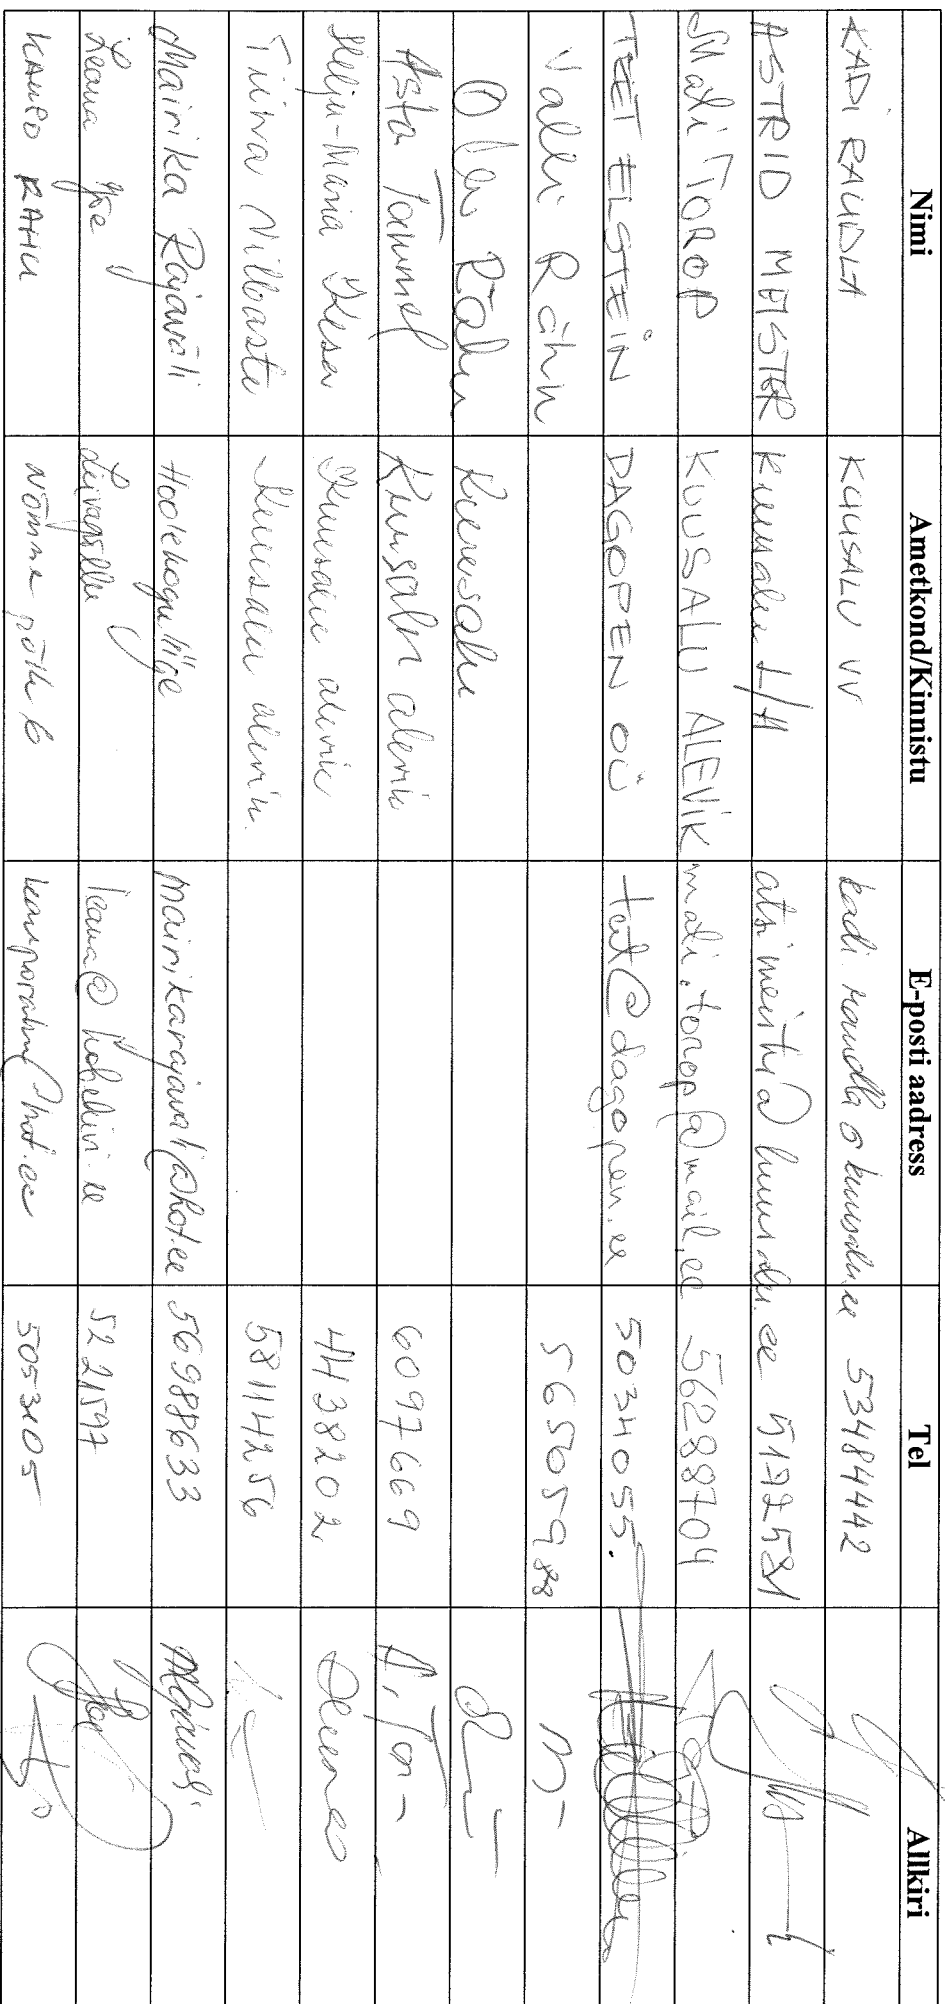 Nimi Ametkond/Kinnistu E-posti aadress Tel Allkiri
KADI RAUDLA KUUSALU VV kadi.raudla@kuusalu.ee 53484442
ASTRID MEISTER Kuusalu L/A 5172581
Mali TOROP KUUSALU ALEVIK mali.torop@mail.ee 56288704
TEET ELSTEIN DAGOPEN OÜ teet@dagopen.ee 5034055.
Valli Rähn 56505988
Rähn Kuusalu
Asta Tammel Kuusalu alevik 6097669 A. Tam
Helju-Maria Kuusalu alevik 4438202
Tiina Vilbaste Kuusalu alevik. 58114256
Mairika Rajaväli Hoolekogu liige mairikarajavali@hot.ee 56988633
Leana 5221597
RAHU Nõmme põik 6 5053105